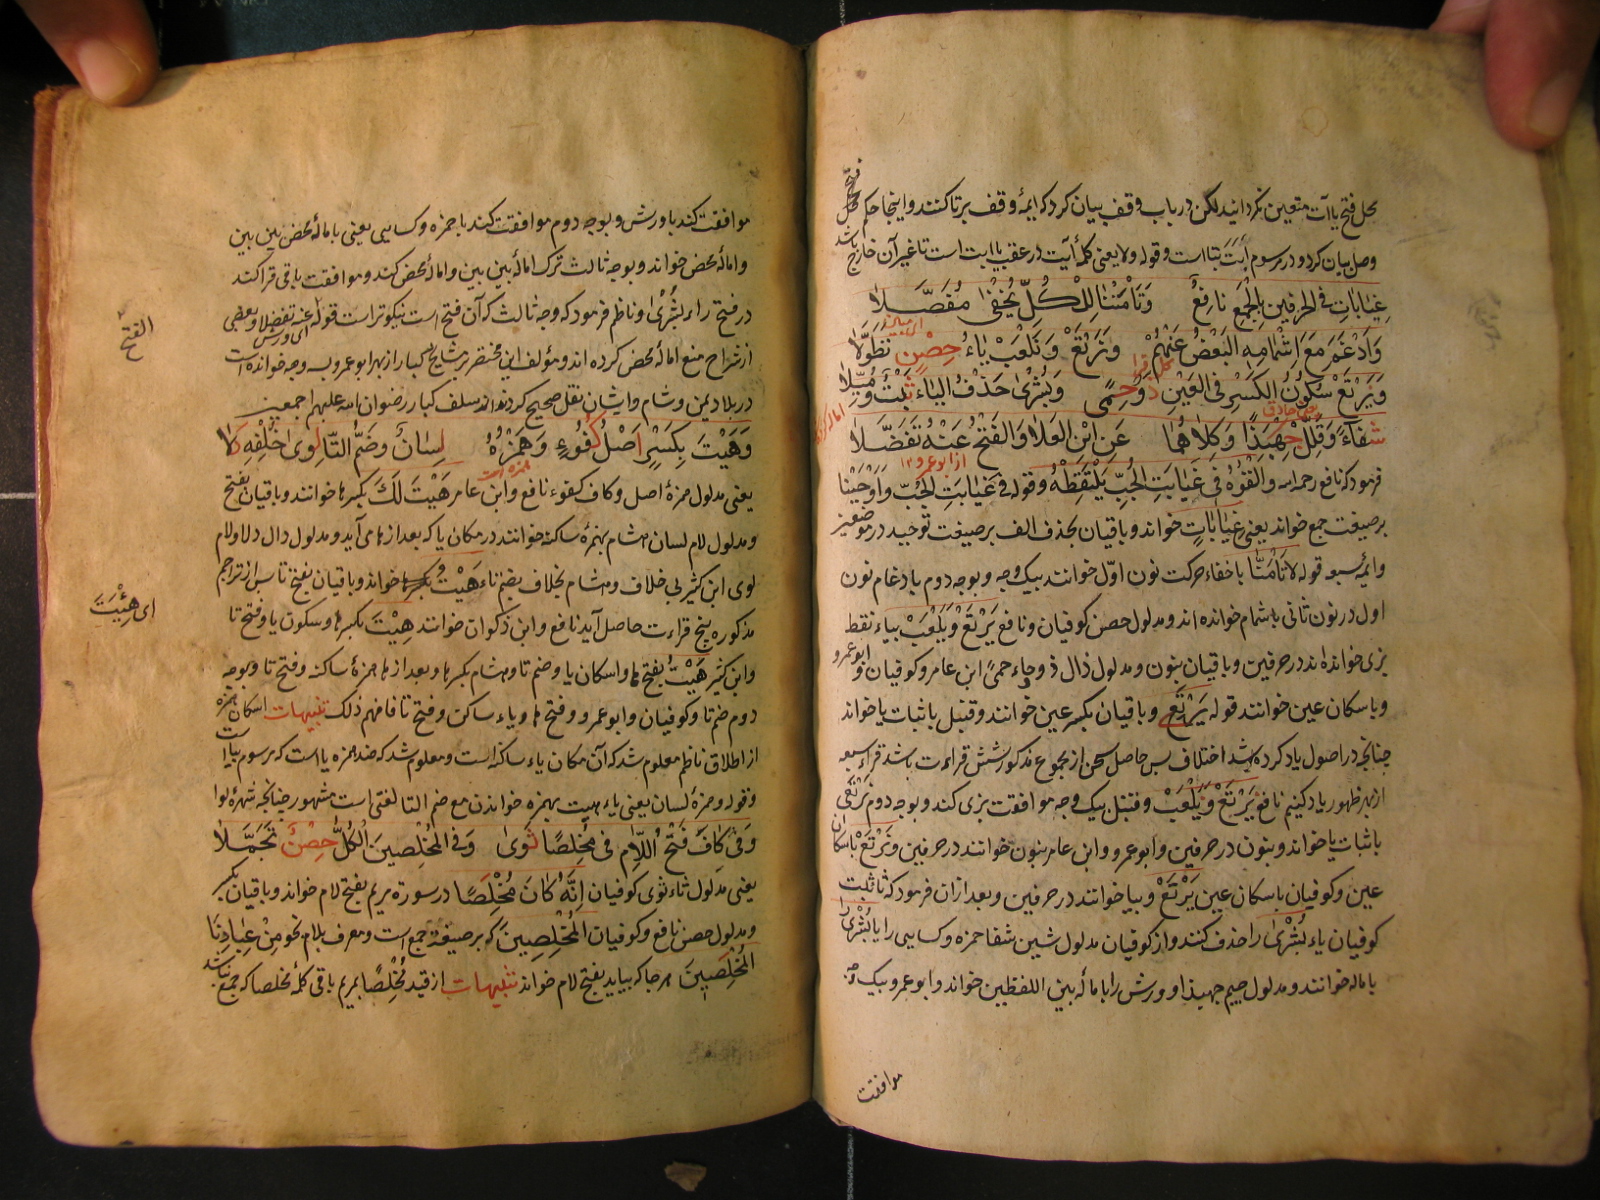 محل فتح یا آت متعین نکردانید لکن در باب وقف بیان کرد که ایمهٔ وقف برتا کنند و اینجا حکم
وصل بیان کرد و در مرسوم أبَتَ بتا است و قوله ولا یعنی کلمهٔ آیت در عقب یا ابت است تا غیر آن خارج باشد
غِيَابَاتِ فِي الْحَرْفَيْنِ بِالْجَمْعِ نَافِعٌ وَتَأْمَنُنَا لِلْكُلِّ يُخْفَى مُفَصَّلَا
وَأَدْغَمَ مَعَ إِشْمَامِهِ الْبَعْضُ عَنْهُمُ وَنَرْتَعْ وَنَلْعَبْ يَاءُ حِصْنٍ تَطَوَّلَا
وَيَرْتَعْ سُكُونُ الْكَسْرِ فِي الْعَيْنِ ذُو حِمًى وَبُشْرَىٰ حَذْفُ الْيَاءِ ثَبْتٌ وَمُيِّلَا
شِفَاءً وَقَلِّلْ جِهْبِذًا وَكِلَاهُمَا عَنِ ابْنِ الْعَلَا وَالْفَتْحُ عَنْهُ تَفَضَّلَا
فرمود که نافع رحمه الله وَالْقَوْهُ فِي غَيَابَتِ الْجُبِّ يَلْتَقِطْهُ و قوله فِي غَيَابَتِ الْجُبِّ وَأَوْحَيْنَا
بر صیغت جمع خواند یعنی غِيَابَاتِ خواند و باقیان بحذف الف بر صیغت توحید در موضعین
و ایمهٔ سبعه قوله لَا تَأْمَنَّا باخفاء حرکت نون اوّل خوانند بیک وجه و بوجه دوم بادغام نون
اول در نون ثانی باشمام خوانده اند و مدلول حصن کوفیان و نافع يَرْتَعْ وَيَلْعَبْ بیاء نقط
بزی خوانده اند در حرفین و باقیان بنون و مدلول ذال ذو و حاء حمیً ابن عامر و کوفیان و ابو عمرو
و باسکان عین خوانند قوله يَرْتَعْ و باقیان بکسر عین خوانند و قنبل باثبات یا خواند
چنانچه در اصول یاد کرده شد اختلاف پس حاصل سخن از مجموع مذکور شش قراءت باشد قراء سبعه
از بهر ظهور یاد کنیم نافع يَرْتَعِ وَيَلْعَبْ و قنبل بیک وجه موافقت بزی کند و بوجه دوم نَرْتَعِي
باثبات یا خواند و بنون در حرفین و ابو عمرو و ابن عامر بنون خوانند در حرفین وَنَرْتَعْ باسکان
عین و کوفیان باسکان عین يَرْتَعْ و بیا خوانند در حرفین و بعد ازان فرمود که ثا ثبت
کوفیان یاء بُشْرَايَ را حذف کنند و از کوفیان مدلول شین شفا حمزه و کسایی را یا بُشْرَىٰ را
باماله خوانند و مدلول جیم جهبذا و ورش را بامالهٔ بین اللفظین خواند و ابو عمرو بیک وجه
موافقت
موافقت کند با ورش و بوجه دوم موافقت کند با حمزه و کسایی یعنی بامالهٔ محض بین بین
و امالهٔ محض خواند و بوجه ثالث ترک امالهٔ بین بین و امالهٔ محض کند و موافقت باقی قرا کند
در فتح راء بُشْرَىٰ و ناظم فرمود که وجه ثالث که آن فتح است نیکوتر است قوله عنه تفضلا و بعضی
از شراح منع امالهٔ محض کرده اند و مؤلف این مختصر بر مشایخ کبار از بهر ابو عمرو بسه وجه خوانده است
در بلاد یمن و شام و ایشان نقل صحیح کردند از سلف کبار رضوان الله علیهم اجمعین
الفتح
وَهَيْتَ بِكَسْرٍ أَصْلُ كُفْوٍ وَهَمْزُهُ لِسَانٌ وَضَمُّ التَّا لِوَىٰ خُلْفِهِ دَلَا
یعنی مدلول همزهٔ اصل و کاف کفوء نافع و ابن عامر هَيْتَ لَكَ بکسر ها خوانند و باقیان بفتح
و مدلول لام لسان هشام بهمزهٔ ساکنه خوانند در مکان یا که بعد از ها می آید و مدلول دال دلا و لام
لوی ابن کثیر بی خلاف و هشام بخلاف بضم تاء هَيْتُ خواند و باقیان بفتح تا پس از تراجم
مذکوره پنج قراءت حاصل آید نافع و ابن ذکوان خوانند هِيْتَ بکسر ها و سکون یا و فتح تا
ای هِئْتَ
و ابن کثیر هَيْتُ بفتح ها و اسکان یا و ضم تا و هشام بکسر ها و بعد از ها همزهٔ ساکنه و فتح تا و بوجه
دوم ضم تا و کوفیان و ابو عمرو و فتح ها و یاء ساکن و فتح تا فافهم ذلک تنبیهات اسکان همزه
از اطلاق ناظم معلوم شد که آن مکان یاء ساکنه است و معلوم شد که ضد همزه یا است که مرسوم بیا است
و قوله و همزهٔ لسان یعنی یاء هیت بهمزه خواندن مع ضم التا لغتی است مشهور چنانچه شهرهٔ لوا
وَفِي كَافَ فَتْحُ اللَّامِ فِي مُخْلِصًا ثَوَىٰ وَفِي الْمُخْلِصِينَ الْكُلِّ حِصْنٌ تَجَمَّلَا
یعنی مدلول ثاء ثوی کوفیان إِنَّهُ كَانَ مُخْلَصًا در سورة مریم بفتح لام خواند و باقیان بکسر
و مدلول حصن نافع و کوفیان الْمُخْلَصِينَ که بر صیغهٔ جمع است و معرف بلام نحو مِنْ عِبَادِنَا
الْمُخْلَصِينَ هر جا که بیاید بفتح لام خواند تنبیهات از قید مُخْلَصًا بمریم باقی کلمهٔ مخلصا که جمع نباشد